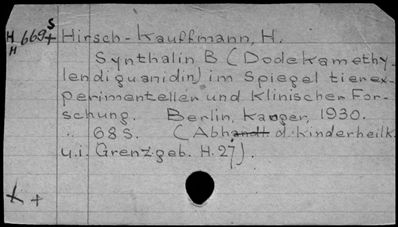 H 669+ S Hirsch-Kauffmann, H.
H
Synthalin B (Dodekamethy-
lendiguanidin) im Spiegel tierex-
perimenteller und klinischer For-
schung. Berlin, Karger, 1930.
68 S. (Abhandl d. Kinderheilk.
u.i. Grenzgeb. H. 27).